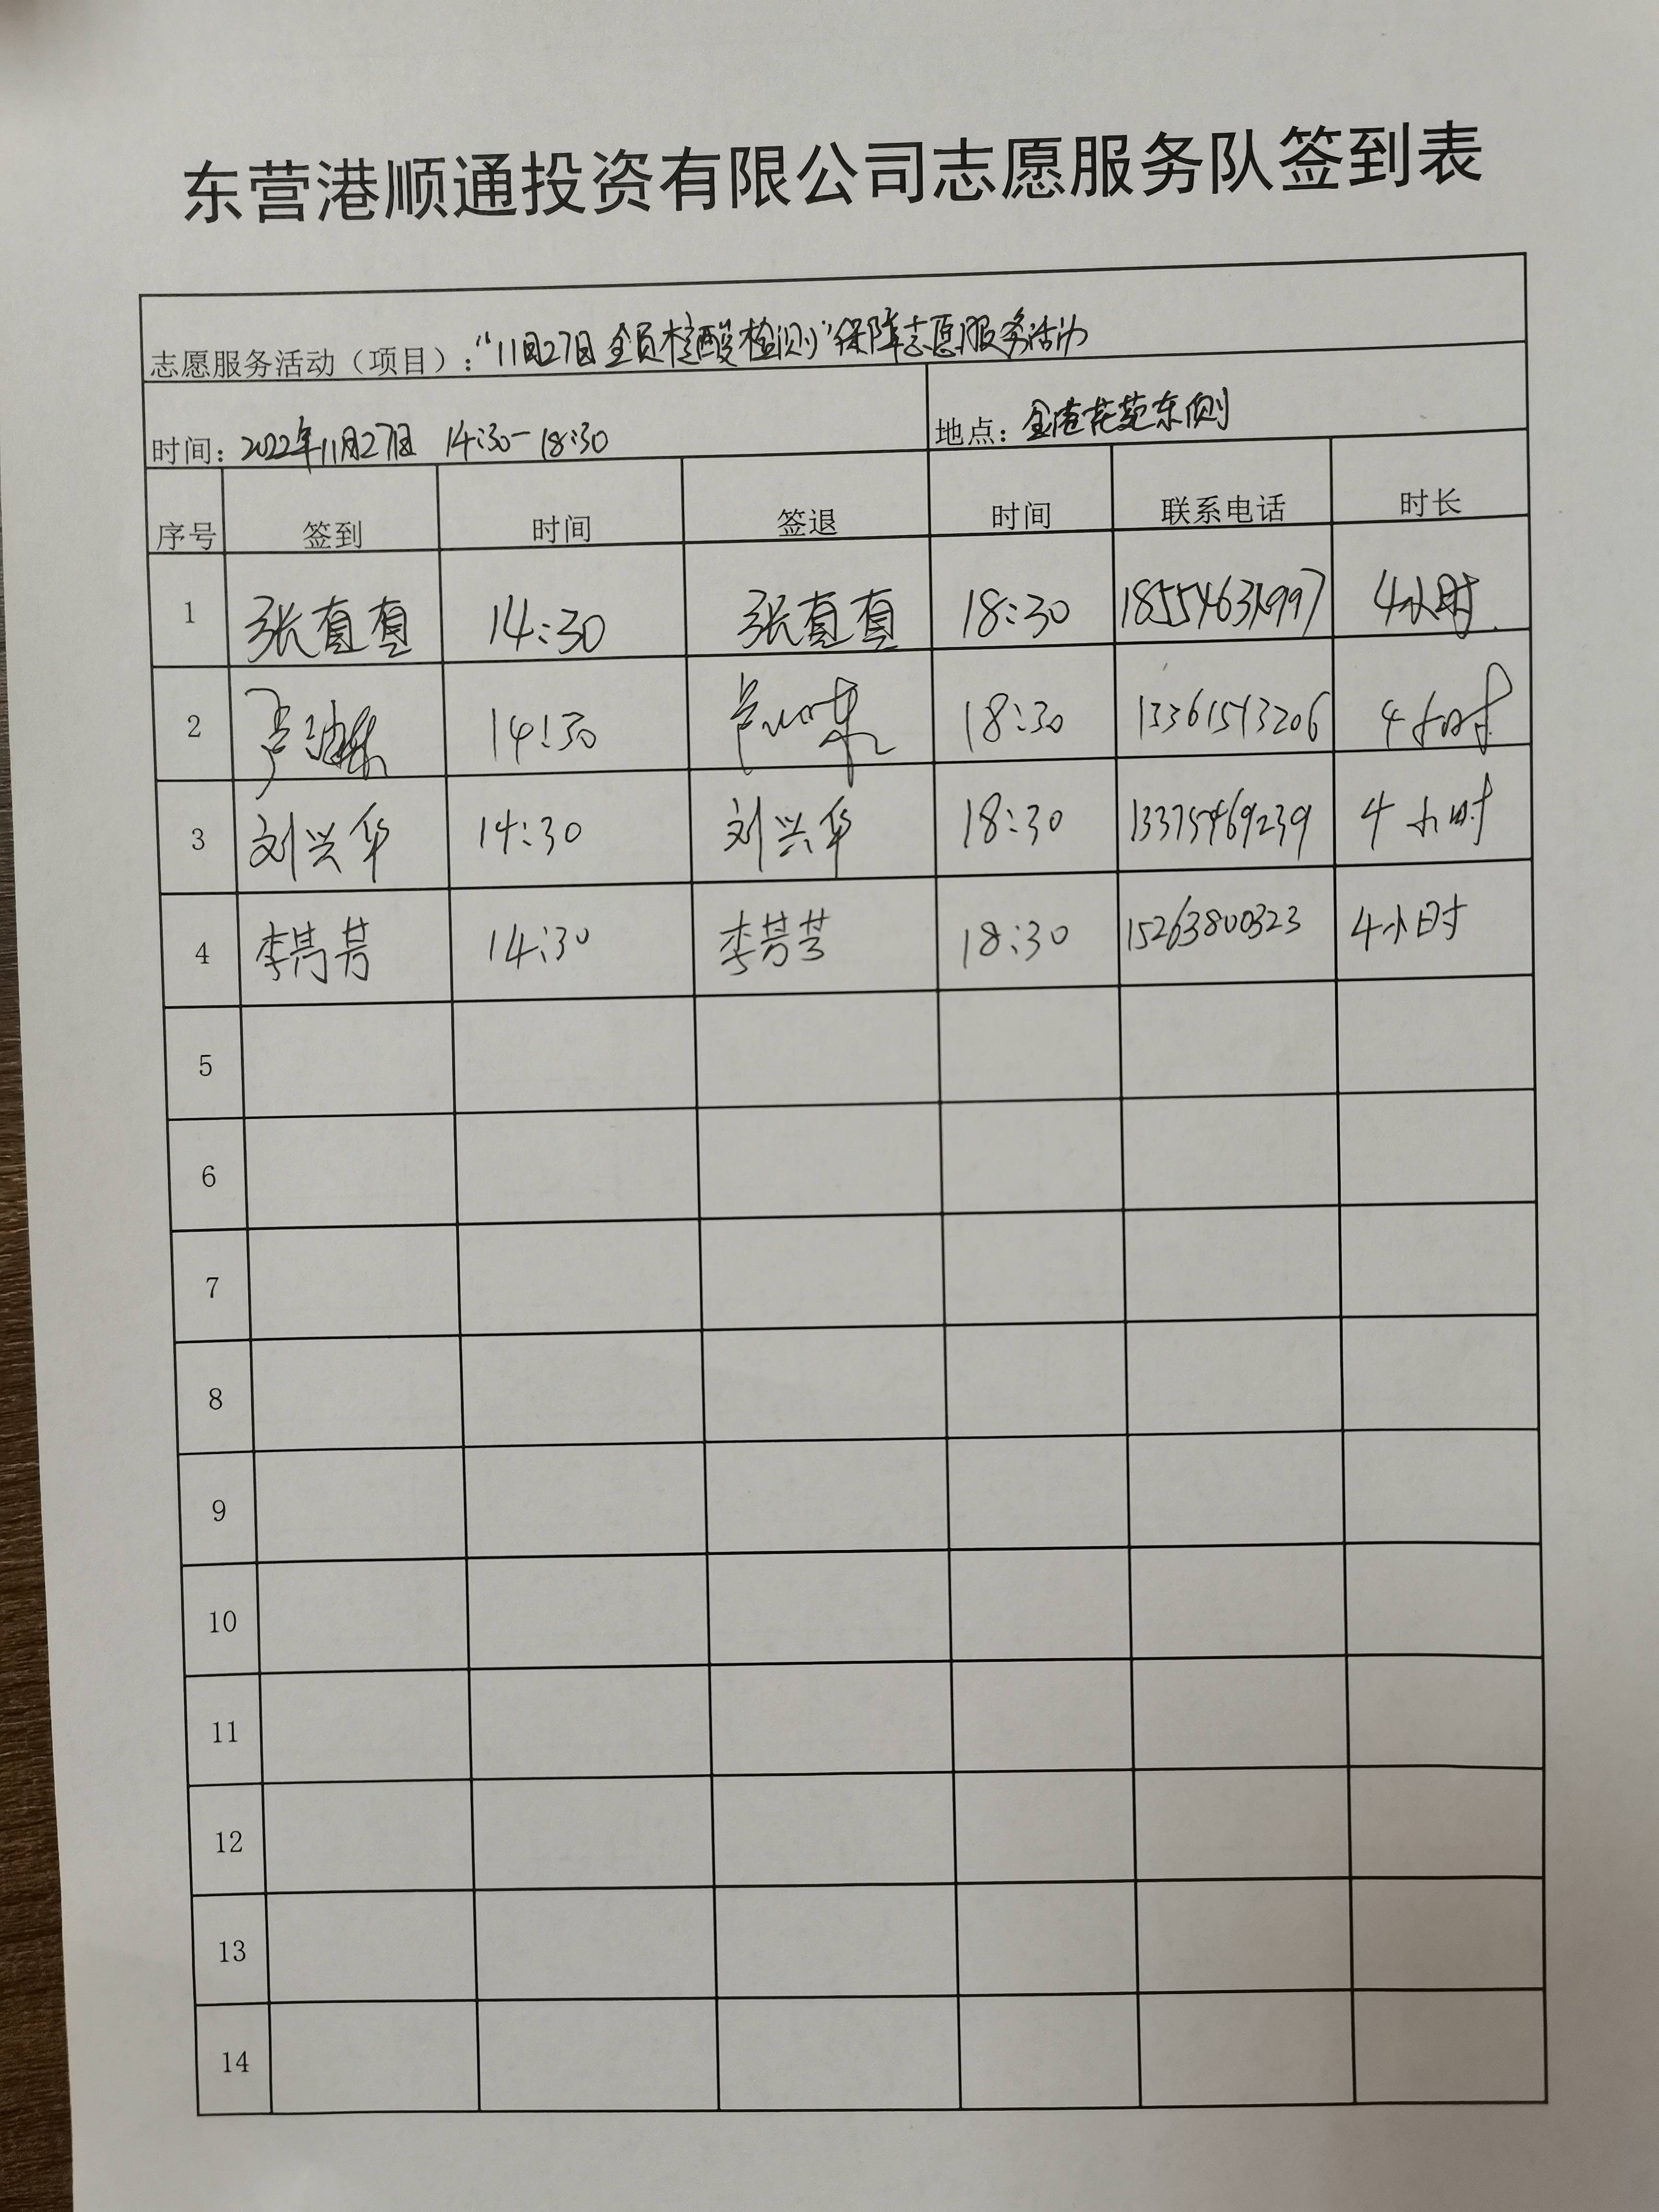 东营港顺通投资有限公司志愿服务队签到表
志愿服务活动（项目）："11月27日全员核酸检测"保障志愿服务活动
时间：2022年11月27日 14:30-18:30 地点：金港花苑东侧
序号 签到 时间 签退 时间 联系电话 时长
1 张真真 14:30 张真真 18:30 4小时
2 14:30 18:30 13361513206 4小时
3 刘兴华 14:30 刘兴华 18:30 13375469239 4小时
4 李芳芳 14:30 李芳芳 18:30 15263800323 4小时
5
6
7
8
9
10
11
12
13
14